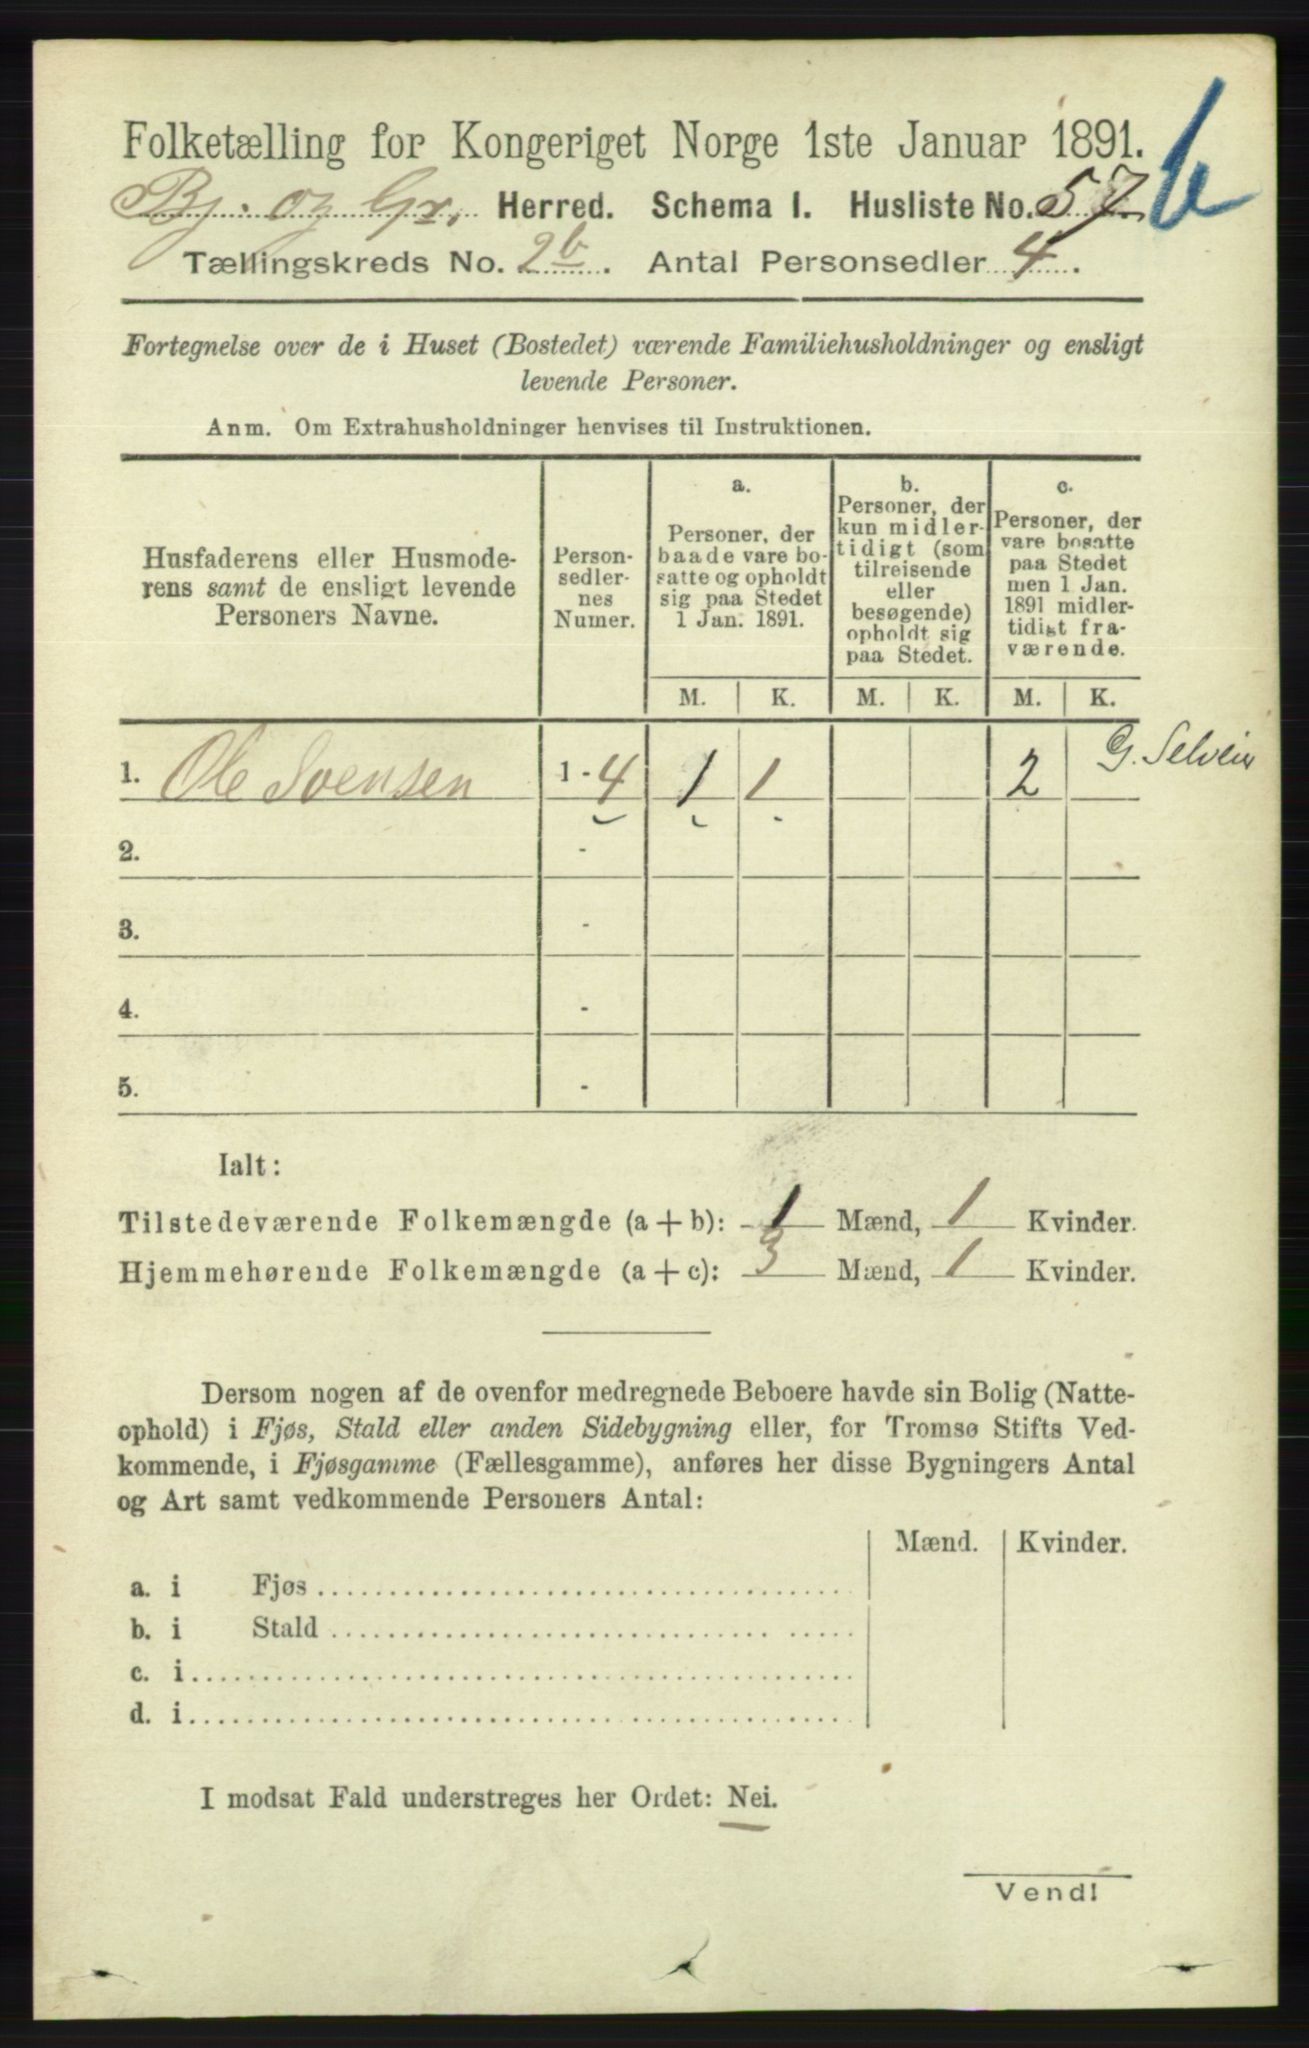 Folketælling for Kongeriget Norge 1ste Januar 1891.
Bj. og Gr. Herred. Schema 1. Husliste No. 57
b
Tællingskreds No. 2b. Antal Personsedler 4.
Fortegnelse over de i Huset (Bostedet) værende Familiehusholdninger og ensligt
levende Personer.
Anm. Om Extrahusholdninger henvises til Instruktionen.
Husfaderens eller Husmode-
rens samt de ensligt levende
Personers Navne.
Person-
sedler-
nes
Numer.
a.
Personer, der
baade vare bo-
satte og opholdt
sig paa Stedet
1 Jan. 1891.
b.
Personer, der
kun midler-
tidigt (som
tilreisende
eller
besøgende)
opholdt sig
paa Stedet.
c.
Personer, der
vare bosatte
paa Stedet
men 1 Jan.
1891 midler-
tidigt fra-
værende.
M. K. M. K. M. K.
1. Ole Svensen 1 - 4 1 1 2 G. Selveier
2. -
3. -
4. -
5. -
Ialt:
Tilstedeværende Folkemængde (a + b): 1 Mænd, 1 Kvinder.
Hjemmehørende Folkemængde (a + c): 3 Mænd, 1 Kvinder.
Dersom nogen af de ovenfor medregnede Beboere havde sin Bolig (Natte-
ophold) i Fjøs, Stald eller anden Sidebygning eller, for Tromsø Stifts Ved-
kommende, i Fjøsgamme (Fællesgamme), anføres her disse Bygningers Antal
og Art samt vedkommende Personers Antal:
Mænd. Kvinder.
a. i Fjøs
b. i Stald
c. i
d. i
I modsat Fald understreges her Ordet: Nei.
Vend!